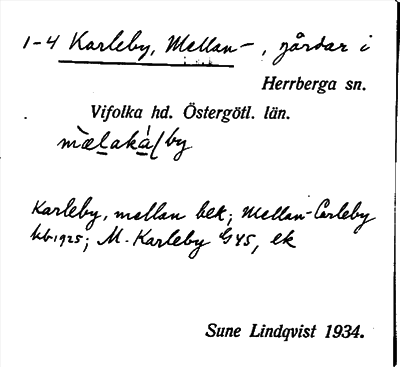 1-4 Karleby, Mellan-, gårdar i
Herrberga sn.
Vifolka hd. Östergötl. län.
mælaká/by
Karleby, mellan bek; Mellan-Carleby
kb 1925; M. Karleby G 45, ek
Sune Lindqvist 1934.